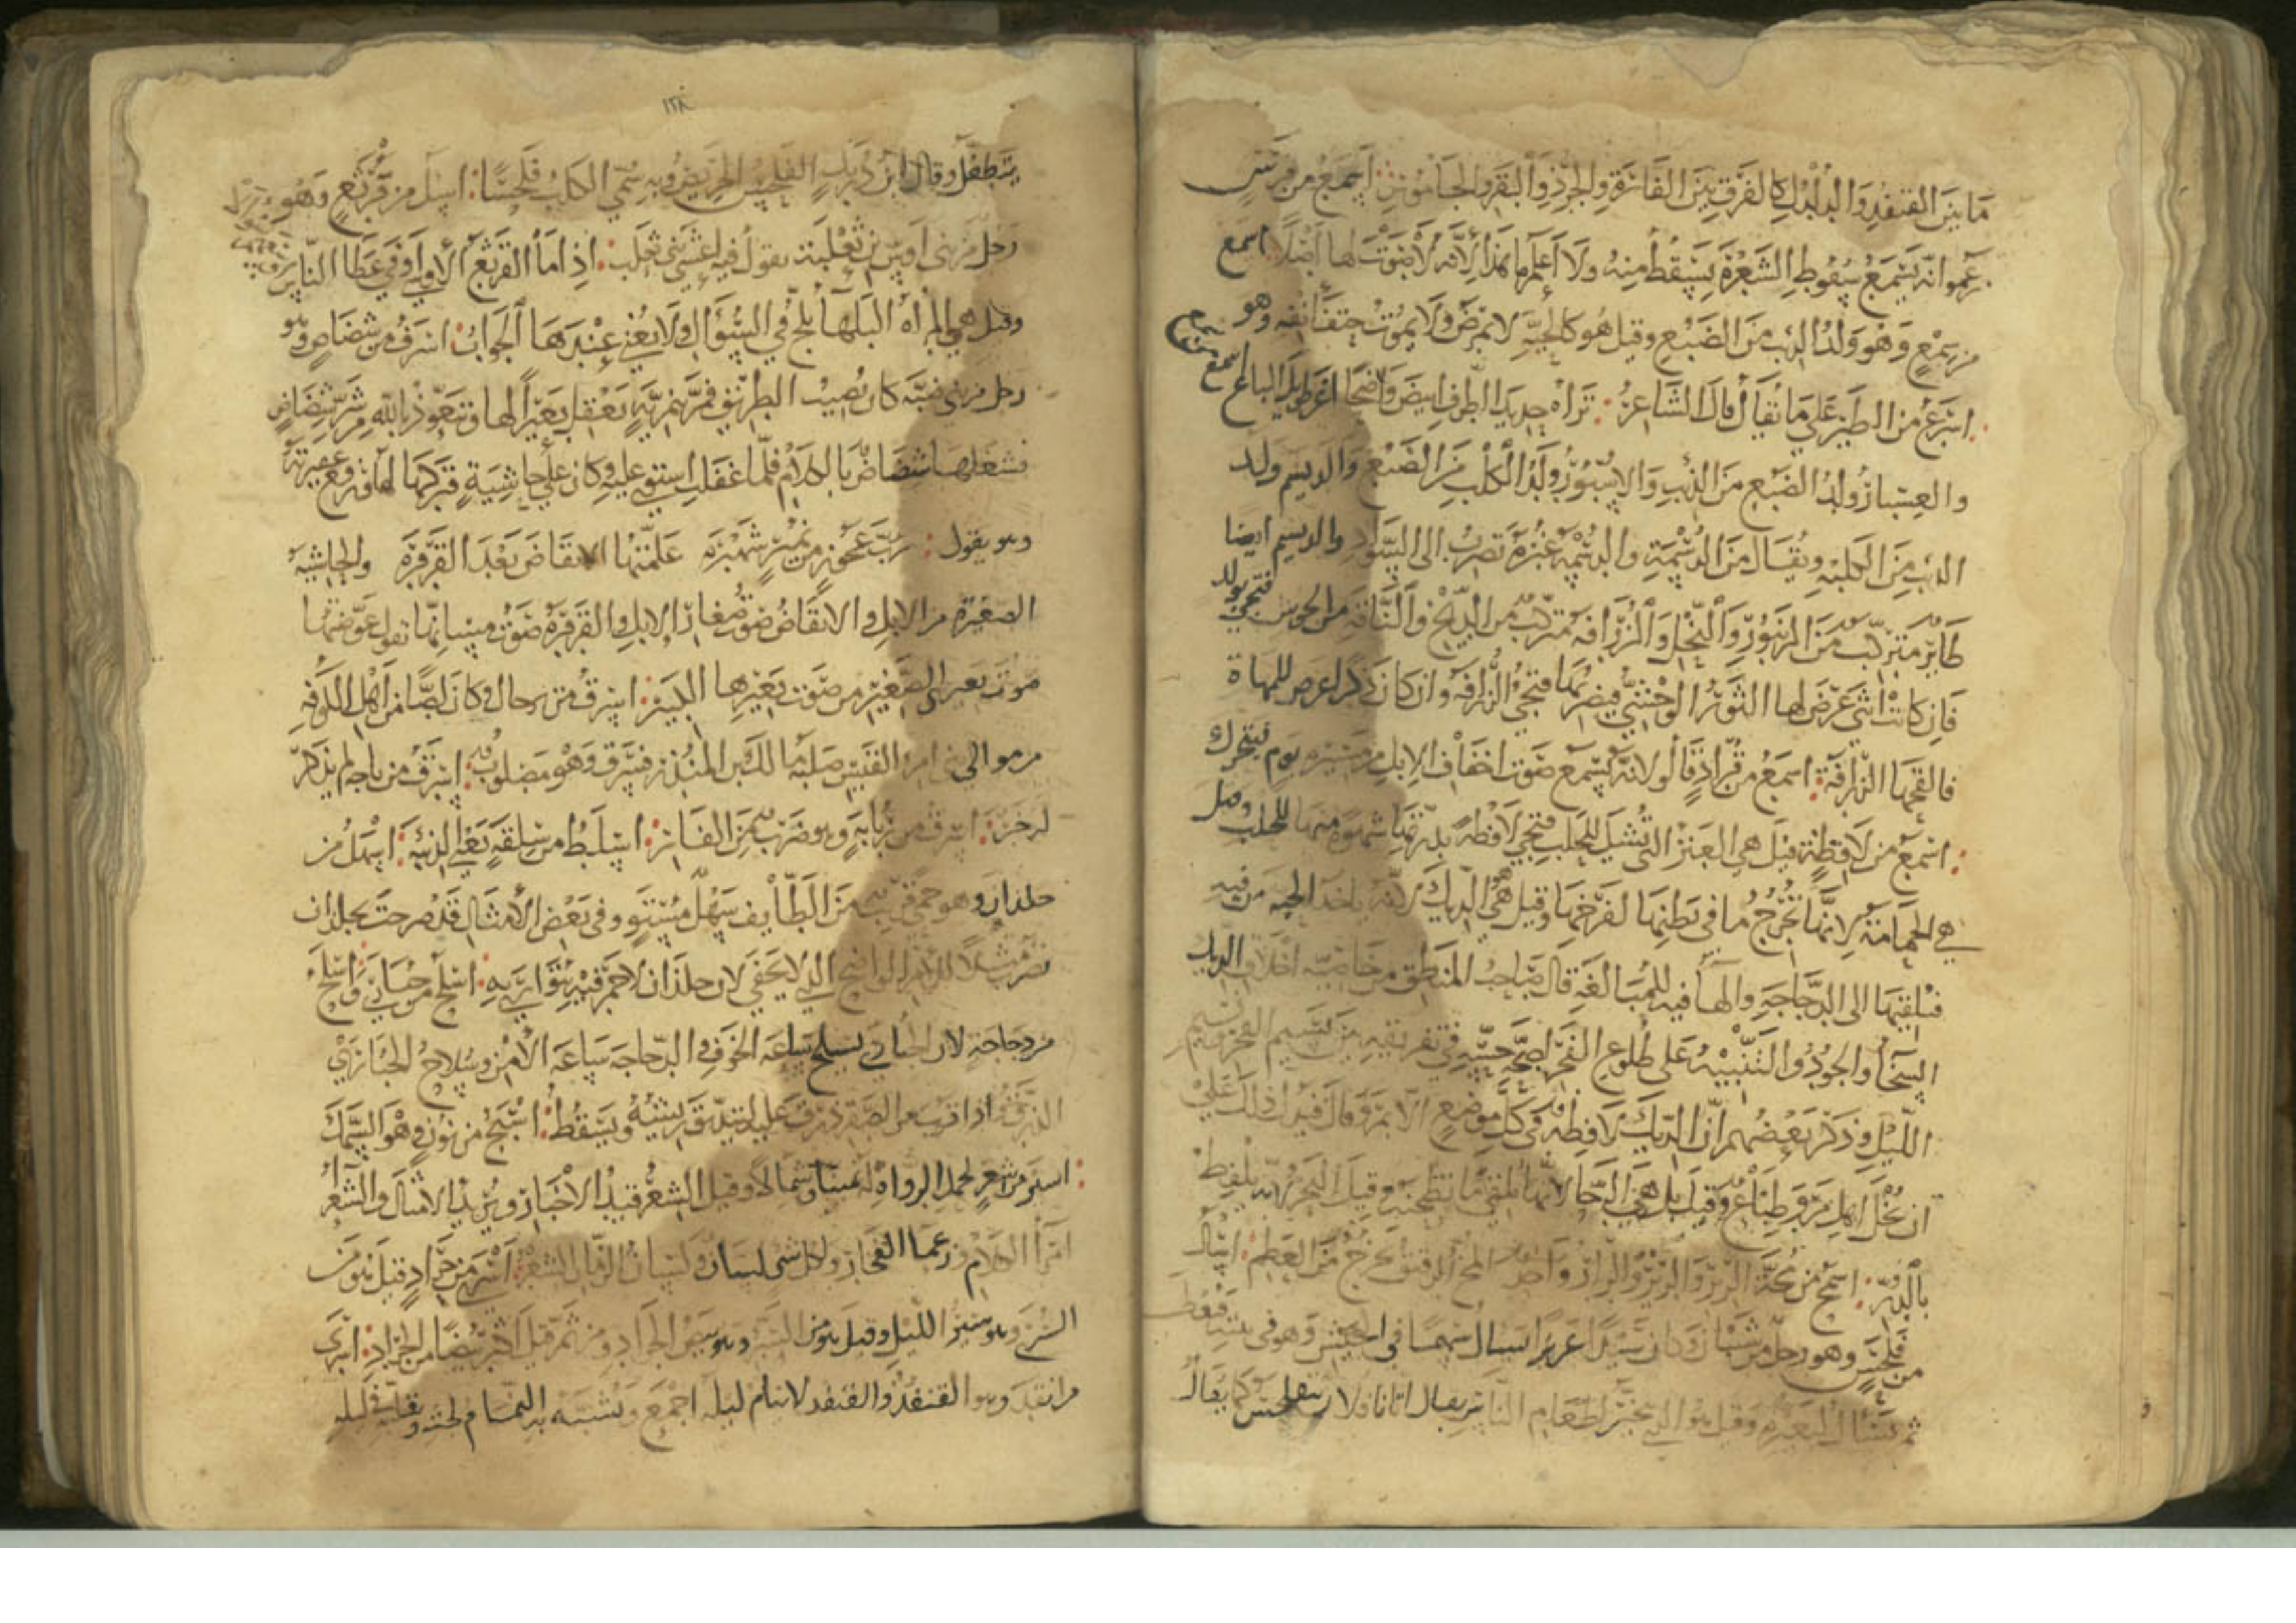 ما بين القنفذ والدلدل كالفرق بين الفأرة والجرذ والبقر والجاموس: اسمع من فرس
زعموا انه يسمع سقوط الشعرة يسقط منه ولا أعلم ما هذا لأنه لا صوت لها اصلا: اسمع
من سمع وهو ولد الذئب من الضبع وقيل هو كالحية لا تمرض ولا يموت حتف أنفه وهو
اسرع من الطير على ما يقال قال الشاعر: تراه حديد الطرف ابيض واضحا اغر طويل الباع اسمع من سمع
والعسبار ولد الضبع من الذئب والاسبور ولد الكلب من الضبع والديسم ولد
الذئب من الكلبة ويقال من الدسمة والدسمة غبرة تضرب الى السواد والديسم ايضا
طائر مركب من الزنبور والنحل والزرافة مركب من الذيخ والناقة من الحوش فتجي بولد
فان كانت انثى عرض لها الثور الوحشي فيضربها فتجي الزرافة وان كان ذكرا عرض للمهاة
فالقحها الزرافة: اسمع من قراد قالوا لانه يسمع صوت اخفاف الابل من مسيرة يوم فيتحرك
: اسمح من لافظة قيل هي العنز التي تشلى للحلب فتجي لافظة بدرتها شهوة منها للحلب وقيل
هي الحمامة لانها تخرج ما في بطنها لفرخها وقيل هي الديك لانه ياخذ الحبة من فيه
فيلقيها الى الدجاجة والها فيه للمبالغة قال صاحب المنطق من خاصية اخلاق الديك
السخا والجود والتنبيه على طلوع الفجر لصحة حسه في تفريقه بين نسيم الفجر ونسيم
الليل وذكر بعضهم ان الديك لافظة في كل موضع الا بمرو قال فيدل ذلك على
ان بخل اهل مرو طباع وقيل بل هي الرحا لانها تلقي ما تطحنه وقيل البحر لانه يلفظ
بالدر: اسمح من مخة الرير والرير والرار واحد المخ الرقيق يخرج من العظم: اسأل
من فلحس وهو رجل من شيبان وكان سيدا عزيزا يسأل سهما في الجيش وهو في بيته فيعطى
ثم يسأل لبعيره وقيل هو الذي يتحين لطعام الناس يقال اتانا فلان يتفلحس كما يقال
١٢٨
يتطفل وقال ابن دريد الفلحس الحريص وبه سمي الكلب فلحسا: اسأل من قرثع وهو
رجل من بني اوس بن ثعلبة يقول فيه اعشى بني تغلب: اذا ما القرثع الاوسي وافى عطا الناس
وقيل هي المرأة البلها تلح في السؤال ولا يغني عندها الجواب: اسرق من شظاظ وهو
رجل من بني ضبة كان يصيب الطريق فمر بنميرية تعقل بعيرا لها وتتعوذ بالله من شر شظاظ
فشغلها شظاظ بالكلام فلما غفلت استوى عليه وكان على حاشية فتركها لها ورفع عقيرته
وهو يقول: رب عجوز من نمير شهبرة علمتها الانقاض بعد القرقرة والحاشية
الصغيرة من الابل والانقاض صوت صغار الابل والقرقرة صوت مسانها تقول عوضتها
صوت بعيري الصغير من صوت بعيرها الكبير: اسرق من برجان وكان لصا من اهل الكوفة
من موالي بني امرئ القيس صلبه مالك بن المنذر فسرق وهو مصلوب: اسرق من تاجة لم يذكر
له خبر: اسرق من زبابة وهو ضرب من الفار: اسلط من سلقة يعني الذئبة: اسهل من
جلذان وهو حمى قريب من الطائف سهل مستو وفي بعض الامثال قد صرحت بجلذان
يضرب مثلا للامر الواضح الذي لا يخفى لان جلذان لا خمر فيه يتوارى به: اسلح من حبارى واسلح
من دجاجة لان الحبارى يسلح ساعة الخوف والدجاجة ساعة الامن وسلاح الحبارى
اذا قرب من الصقر ذرقت عليه لتدبق ريشه ويسقط: اسبح من نون وهو السمك
: اسير من شعر لحمل الرواة له يمينا وشمالا وقيل الشعر قيد الاخبار وبريد الامثال والشعرا
امرا الكلام وزعما الفخار ولكل شي لسان ولسان الزمان الشعر: اسرى من جراد قيل هو من
السرى وهو سير الليل وقيل هو من السر وهو بيض الجراد ومن ثم قيل اكثر بيضا من الجراد: اسرى
من انقد وهو القنفذ والقنفد لا ينام ليله اجمع ويشبه به النمام لخبثه وتقلبه في ليله